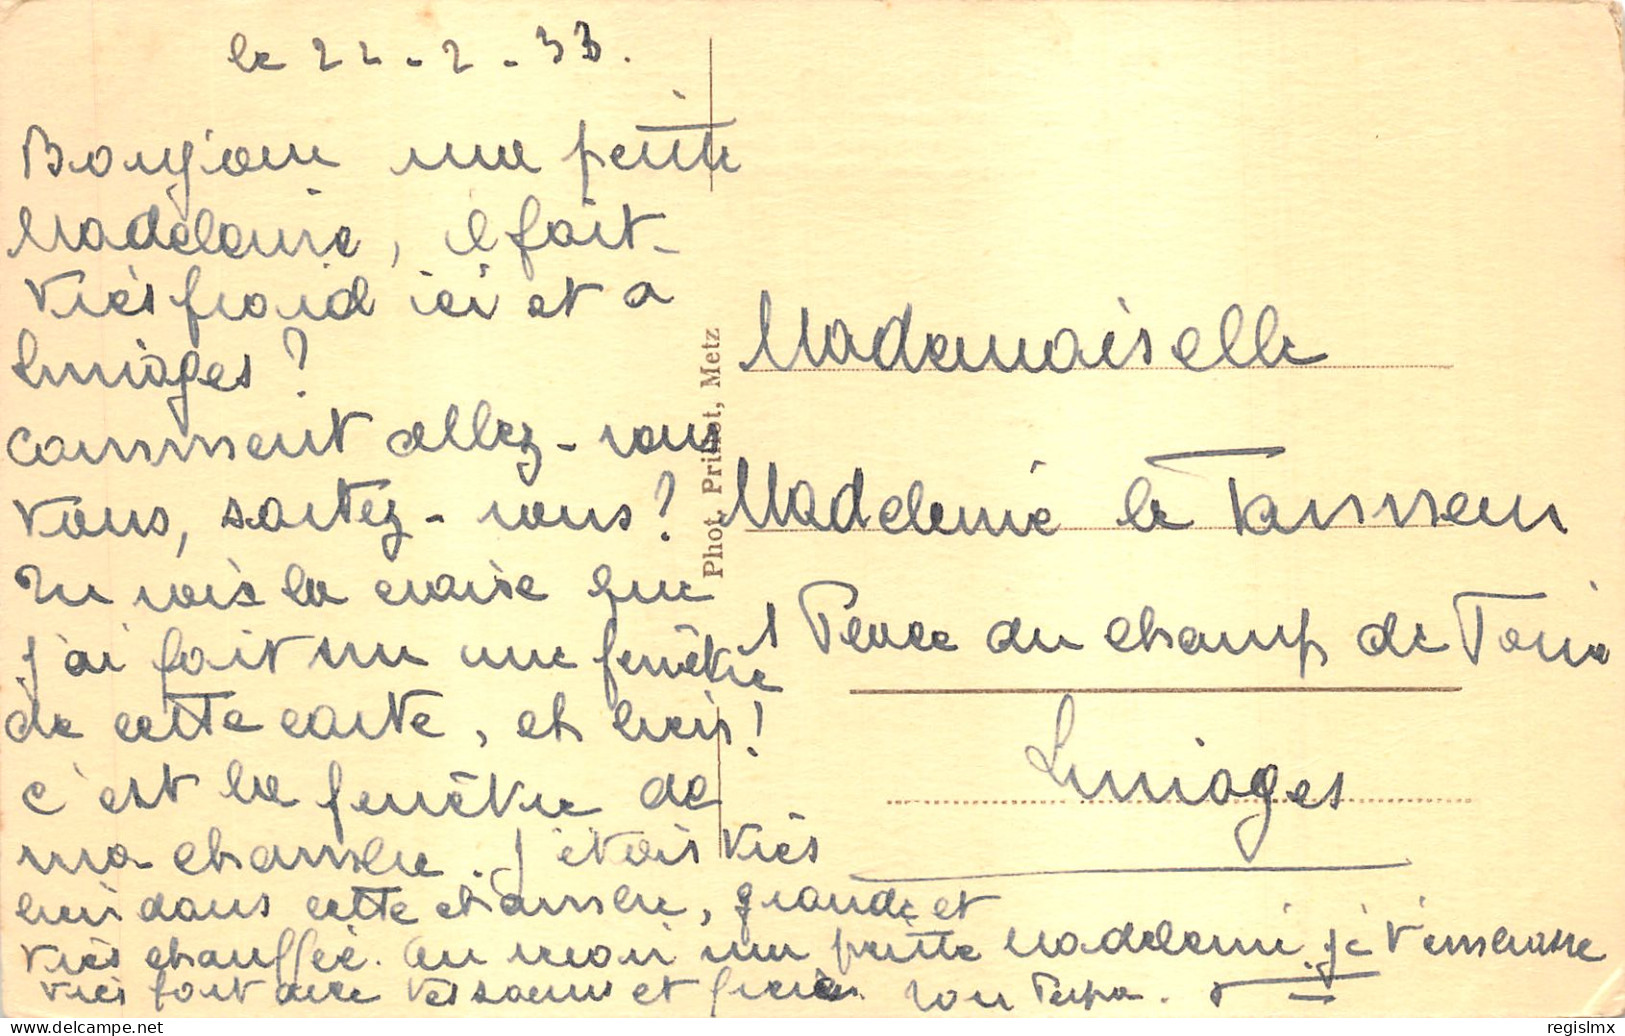 le 22-2-33.
Bonjour ma petite
Madeleine, il fait
très froid ici et a
Limoges?
Comment allez-vous
tous, sortez-vous?
Tu vois la croise que
j'ai fait sur une fenêtre
de cette carte, eh bien!
c'est la fenêtre de
ma chambre. J'étais très
bien dans cette chambre, grande et
très chauffée. Au revoir ma petite Madeleine, je t'embrasse
très fort avec tes soeurs et frères. ton Papa.
Phot. Prillot, Metz
Mademoiselle
Madeleine le
1 Place du champ de Foire
Limoges
regislmx
www.delcampe.net